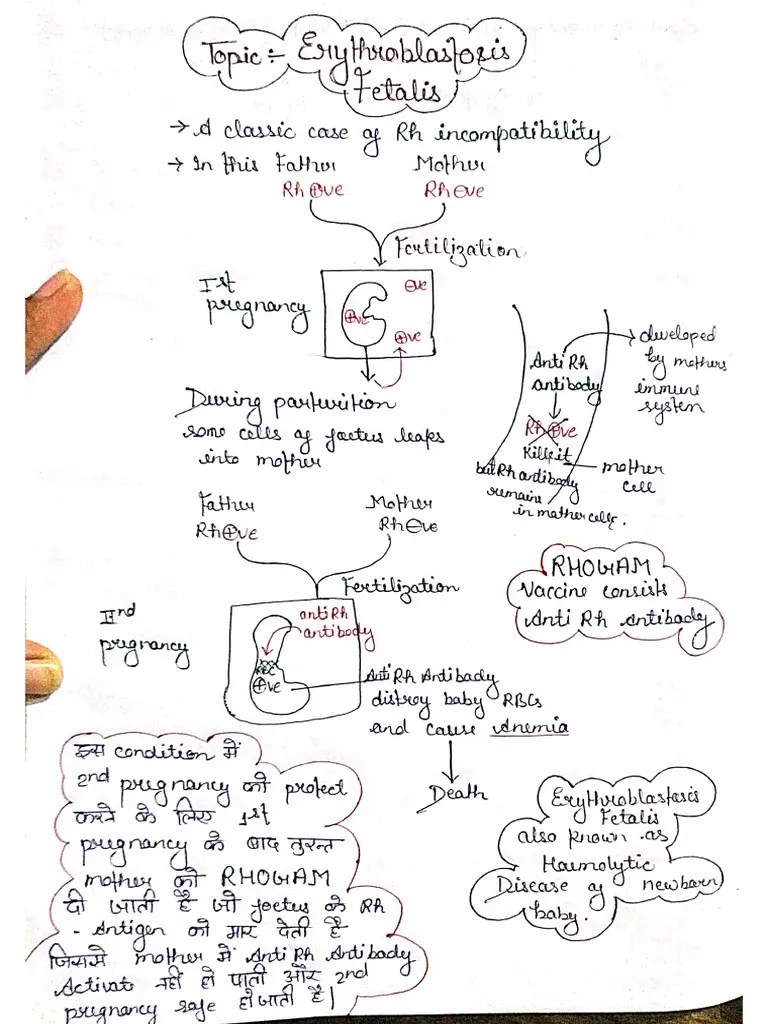 Topic :- Erythroblastosis
Fetalis
→ A classic case of Rh incompatibility
→ In this Father Mother
Rh ⊕ve Rh ⊖ve
Fertilization
Ist
pregnancy
⊖ve
⊕ve
⊕ve
During parturition
some cells of foetus leaps
into mother
Anti Rh
antibody
developed
by mothers
immune
system
Rh ⊕ve
Kills it
but Rh antibody
remains
in mother cells.
mother
cell
Father Mother
Rh⊕ve Rh⊖ve
Fertilization
IInd
pregnancy
anti Rh
antibody
RBC
⊕ve
Anti Rh Antibody
distroy baby RBCs
and cause Anemia
Death
RHOGAM
Vaccine consists
Anti Rh Antibody
इस condition में
2nd pregnancy को protect
करने के लिए 1st
pregnancy के बाद तुरन्त
mother को RHOGAM
दी जाती है जो foetus के Rh
- Antigen को मार देती है
जिससे mother में Anti Rh Antibody
Activate नहीं हो पाती और 2nd
pregnancy safe हो जाती है|
Erythroblastosis
Fetalis
also known as
Haemolytic
Disease of newborn
baby.